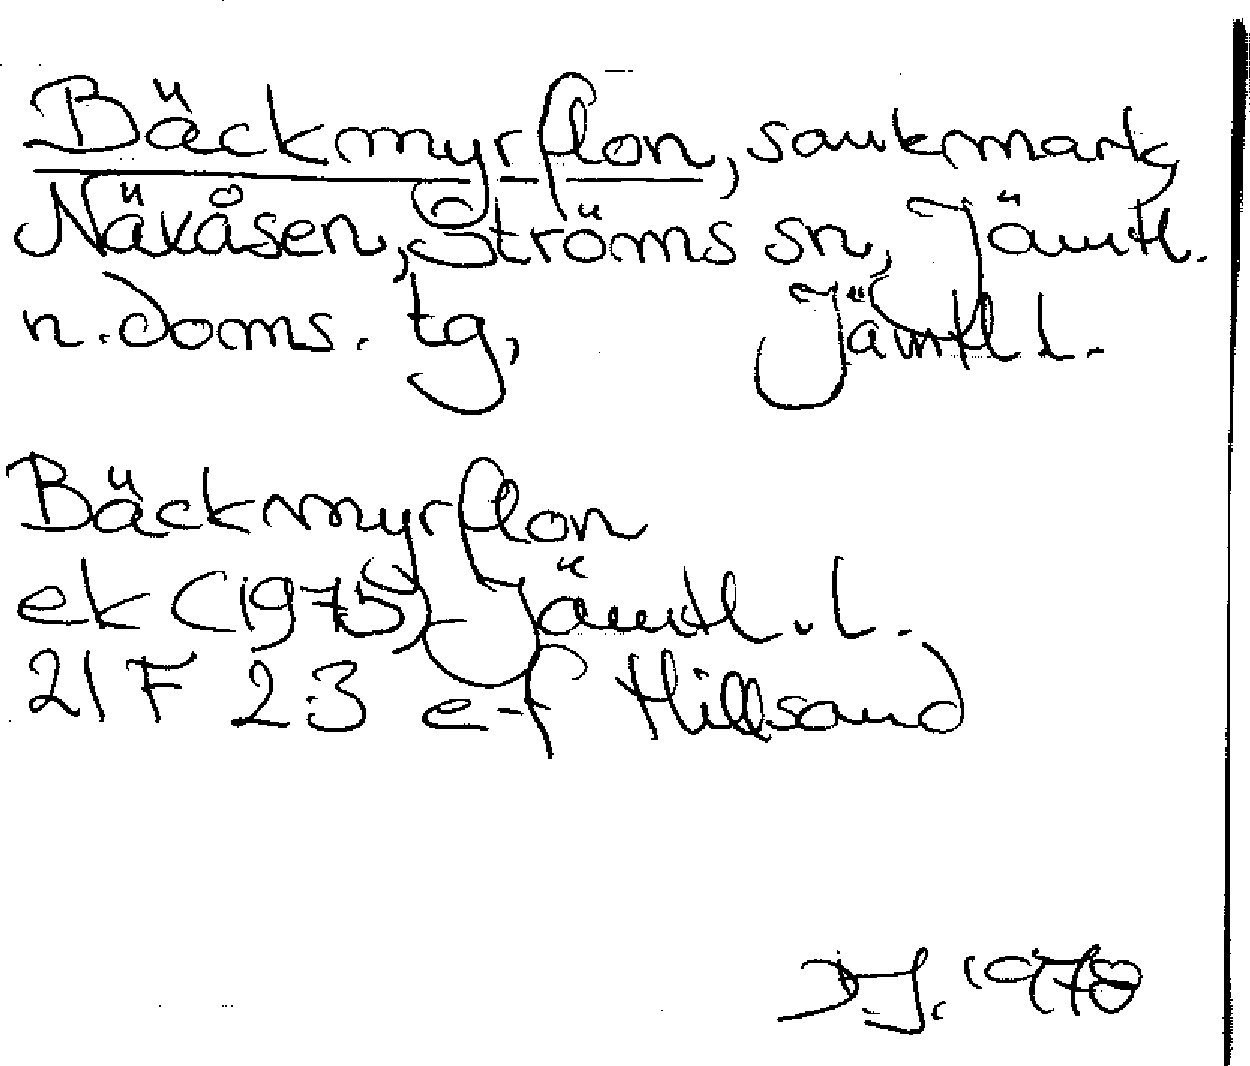 Bäckmyrflon, sankmark,
Näkåsen, Ströms sn, Jämtl.
n. doms. tg, Jämtl l.
Bäckmyrflon
ek (1975) Jämtl. l.
21 F 23 e-f Hillsand
1978